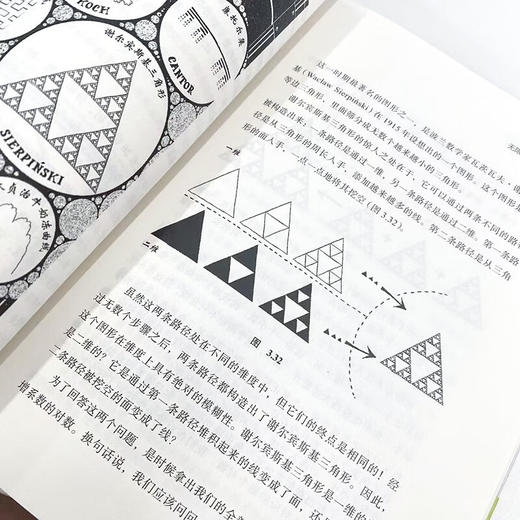 KOCH
康托尔集
CANTOR
谢尔宾斯基三角形
SIERPIŃSKI
贝治木奶冻曲线
无限
这一时期最著名的图形之一,是波兰数学家瓦茨瓦夫·谢尔宾斯
基(Wacław Sierpiński)在 1915 年设想出的一个图形。这个图形是
等边三角形,里面部分被无数个越来越小的三角形
谢尔宾斯基三角形的惊人之处在于,它可以通过两条不同的路
被构造出来:一条路径是通过一维,另一条路径是通过二维。第一条路
是从三角形的周长入手,添加越来越多的线。第二条路径是从三角
形的面入手,一点一点地将其挖空(图 3.32)。
一维
二维
图 3.32
虽然这两条路径处在不同的维度中,但它们的终点是相同的!经
过无数个步骤之后,两条路径都构造出了谢尔宾斯基三角形。因此,
这个图形在维度上具有绝对的模糊性。谢尔宾斯基三角形是一维的
是二维的?它是通过第一条路径堆积起来的线变成了面,还是
二条路径被挖空的面变成了线?
为了回答这两个问题,是时候拿出我们的全
增系数的对数。换句话说,我们应该问问